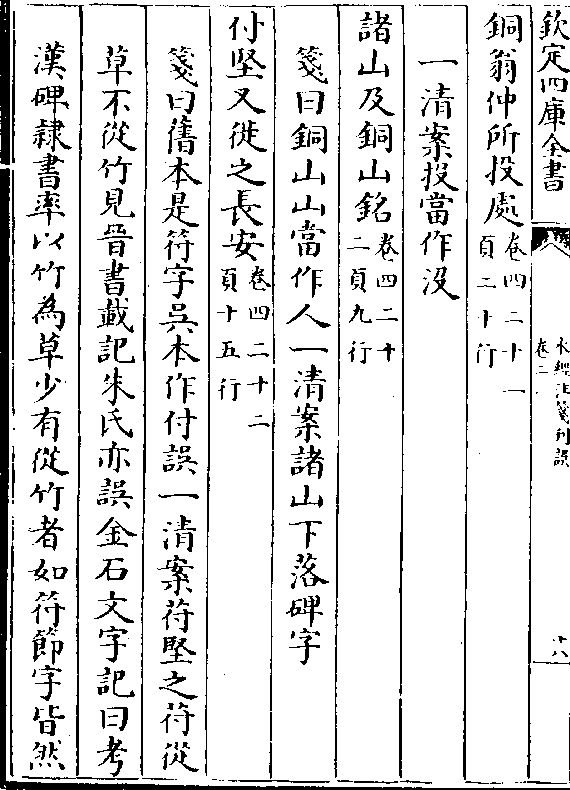 欽定四庫全書
水經注箋刋誤
卷二
十八
銅翁仲所投處卷四二十一頁二十行
一清案投當作没
諸山及銅山銘卷四二十二頁九行
箋曰銅山山當作人一清案諸山下落碑字
付堅又徙之長安卷四二十二頁十五行
箋曰舊本是符字吳本作付誤一清案苻堅之苻從
草不從竹見晉書載記朱氏亦誤金石文字記曰考
漢碑隸書率以竹為草少有從竹者如符節字皆然